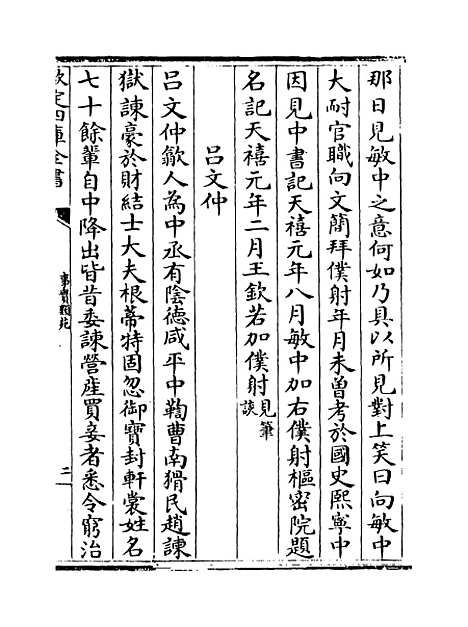 那日見敏中之意何如乃具以所見對上笑曰向敏中
大耐官職向文簡拜僕射年月未曽考於國史熙寧中
因見中書記天禧元年八月敏中加右僕射樞密院題
名記天禧元年二月王欽若加僕射見筆談
吕文仲
吕文仲歙人為中丞有陰德咸平中鞫曹南猾民趙諫
獄諫豪於財結士大夫根蔕特固忽御寳封軒裳姓名
七十餘輩自中降出皆昔委諫營産買妾者悉令窮治
欽定四庫全書
事實類苑
二